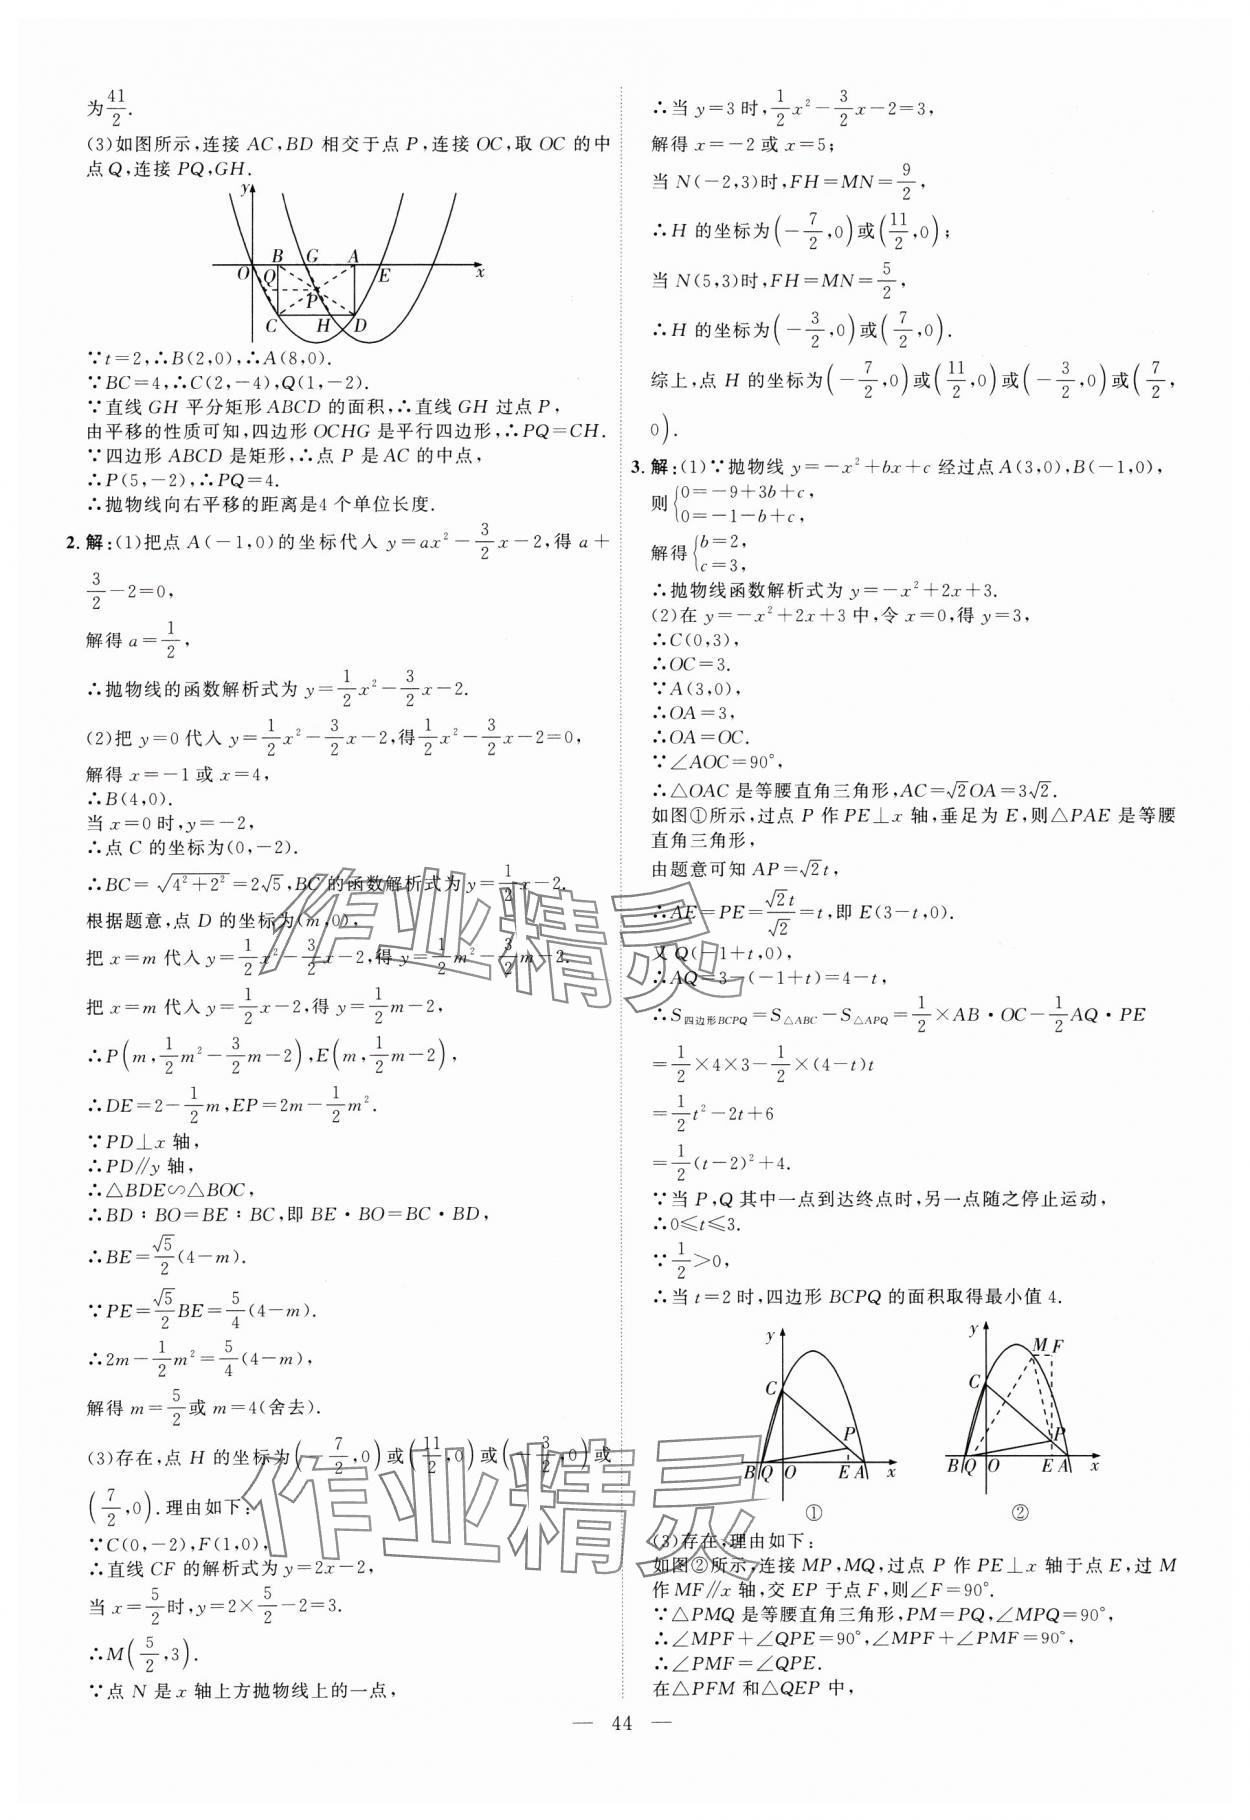 为41/2.
(3)如图所示,连接 AC,BD 相交于点 P,连接 OC,取 OC 的中
点 Q,连接 PQ,GH.
y
B G A
O Q E x
P
C H D
∵t=2,∴B(2,0),∴A(8,0).
∵BC=4,∴C(2,-4),Q(1,-2).
∵直线 GH 平分矩形 ABCD 的面积,∴直线 GH 过点 P,
由平移的性质可知,四边形 OCHG 是平行四边形,∴PQ=CH.
∵四边形 ABCD 是矩形,∴点 P 是 AC 的中点,
∴P(5,-2),∴PQ=4.
∴抛物线向右平移的距离是4 个单位长度.
2. 解:(1)把点 A(-1,0)的坐标代入 y=ax²-3/2x-2,得 a+
3/2-2=0,
解得 a=1/2,
∴抛物线的函数解析式为 y=1/2x²-3/2x-2.
(2)把 y=0 代入 y=1/2x²-3/2x-2,得1/2x²-3/2x-2=0,
解得 x=-1 或 x=4,
∴B(4,0).
当 x=0 时,y=-2,
∴点 C 的坐标为(0,-2).
∴BC=√(4²+2²)=2√5,BC 的函数解析式为 y=1/2x-2.
根据题意,点 D 的坐标为(m,0),
把 x=m 代入 y=1/2x²-3/2x-2,得 y=1/2m²-3/2m-2.
把 x=m 代入 y=1/2x-2,得 y=1/2m-2,
∴P(m,1/2m²-3/2m-2),E(m,1/2m-2),
∴DE=2-1/2m,EP=2m-1/2m².
∵PD⊥x 轴,
∴PD∥y 轴,
∴△BDE∽△BOC,
∴BD∶BO=BE∶BC,即 BE·BO=BC·BD,
∴BE=√5/2(4-m).
∵PE=√5/2BE=5/4(4-m).
∴2m-1/2m²=5/4(4-m),
解得 m=5/2或 m=4(舍去).
(3)存在,点 H 的坐标为(-7/2,0)或(11/2,0)或(-3/2,0)或
(7/2,0).理由如下:
∵C(0,-2),F(1,0),
∴直线 CF 的解析式为 y=2x-2,
当 x=5/2时,y=2×5/2-2=3.
∴M(5/2,3).
∵点 N 是 x 轴上方抛物线上的一点,
∴当 y=3 时,1/2x²-3/2x-2=3,
解得 x=-2 或 x=5;
当 N(-2,3)时,FH=MN=9/2,
∴H 的坐标为(-7/2,0)或(11/2,0);
当 N(5,3)时,FH=MN=5/2,
∴H 的坐标为(-3/2,0)或(7/2,0).
综上,点 H 的坐标为(-7/2,0)或(11/2,0)或(-3/2,0)或(7/2,
0).
3. 解:(1)∵抛物线 y=-x²+bx+c 经过点 A(3,0),B(-1,0),
则{0=-9+3b+c,
0=-1-b+c,
解得{b=2,
c=3,
∴抛物线函数解析式为 y=-x²+2x+3.
(2)在 y=-x²+2x+3 中,令 x=0,得 y=3,
∴C(0,3),
∴OC=3.
∵A(3,0),
∴OA=3,
∴OA=OC.
∵∠AOC=90°,
∴△OAC 是等腰直角三角形,AC=√2OA=3√2.
如图①所示,过点 P 作 PE⊥x 轴,垂足为 E,则△PAE 是等腰
直角三角形,
由题意可知 AP=√2t,
∴AE=PE=√2t/√2=t,即 E(3-t,0).
又 Q(-1+t,0),
∴AQ=3-(-1+t)=4-t,
∴S四边形BCPQ=S△ABC-S△APQ=1/2×AB·OC-1/2AQ·PE
=1/2×4×3-1/2×(4-t)t
=1/2t²-2t+6
=1/2(t-2)²+4.
∵当 P,Q 其中一点到达终点时,另一点随之停止运动,
∴0≤t≤3.
∵1/2>0,
∴当 t=2 时,四边形 BCPQ 的面积取得最小值 4.
y
C
P
B Q O E A x
①
y
M F
C
P
B Q O E A x
②
(3)存在,理由如下:
如图②所示,连接 MP,MQ,过点 P 作 PE⊥x 轴于点 E,过 M
作 MF∥x 轴,交 EP 于点 F,则∠F=90°.
∵△PMQ 是等腰直角三角形,PM=PQ,∠MPQ=90°,
∴∠MPF+∠QPE=90°,∠MPF+∠PMF=90°,
∴∠PMF=∠QPE.
在△PFM 和△QEP 中,
— 44 —
作业精灵
作业精灵